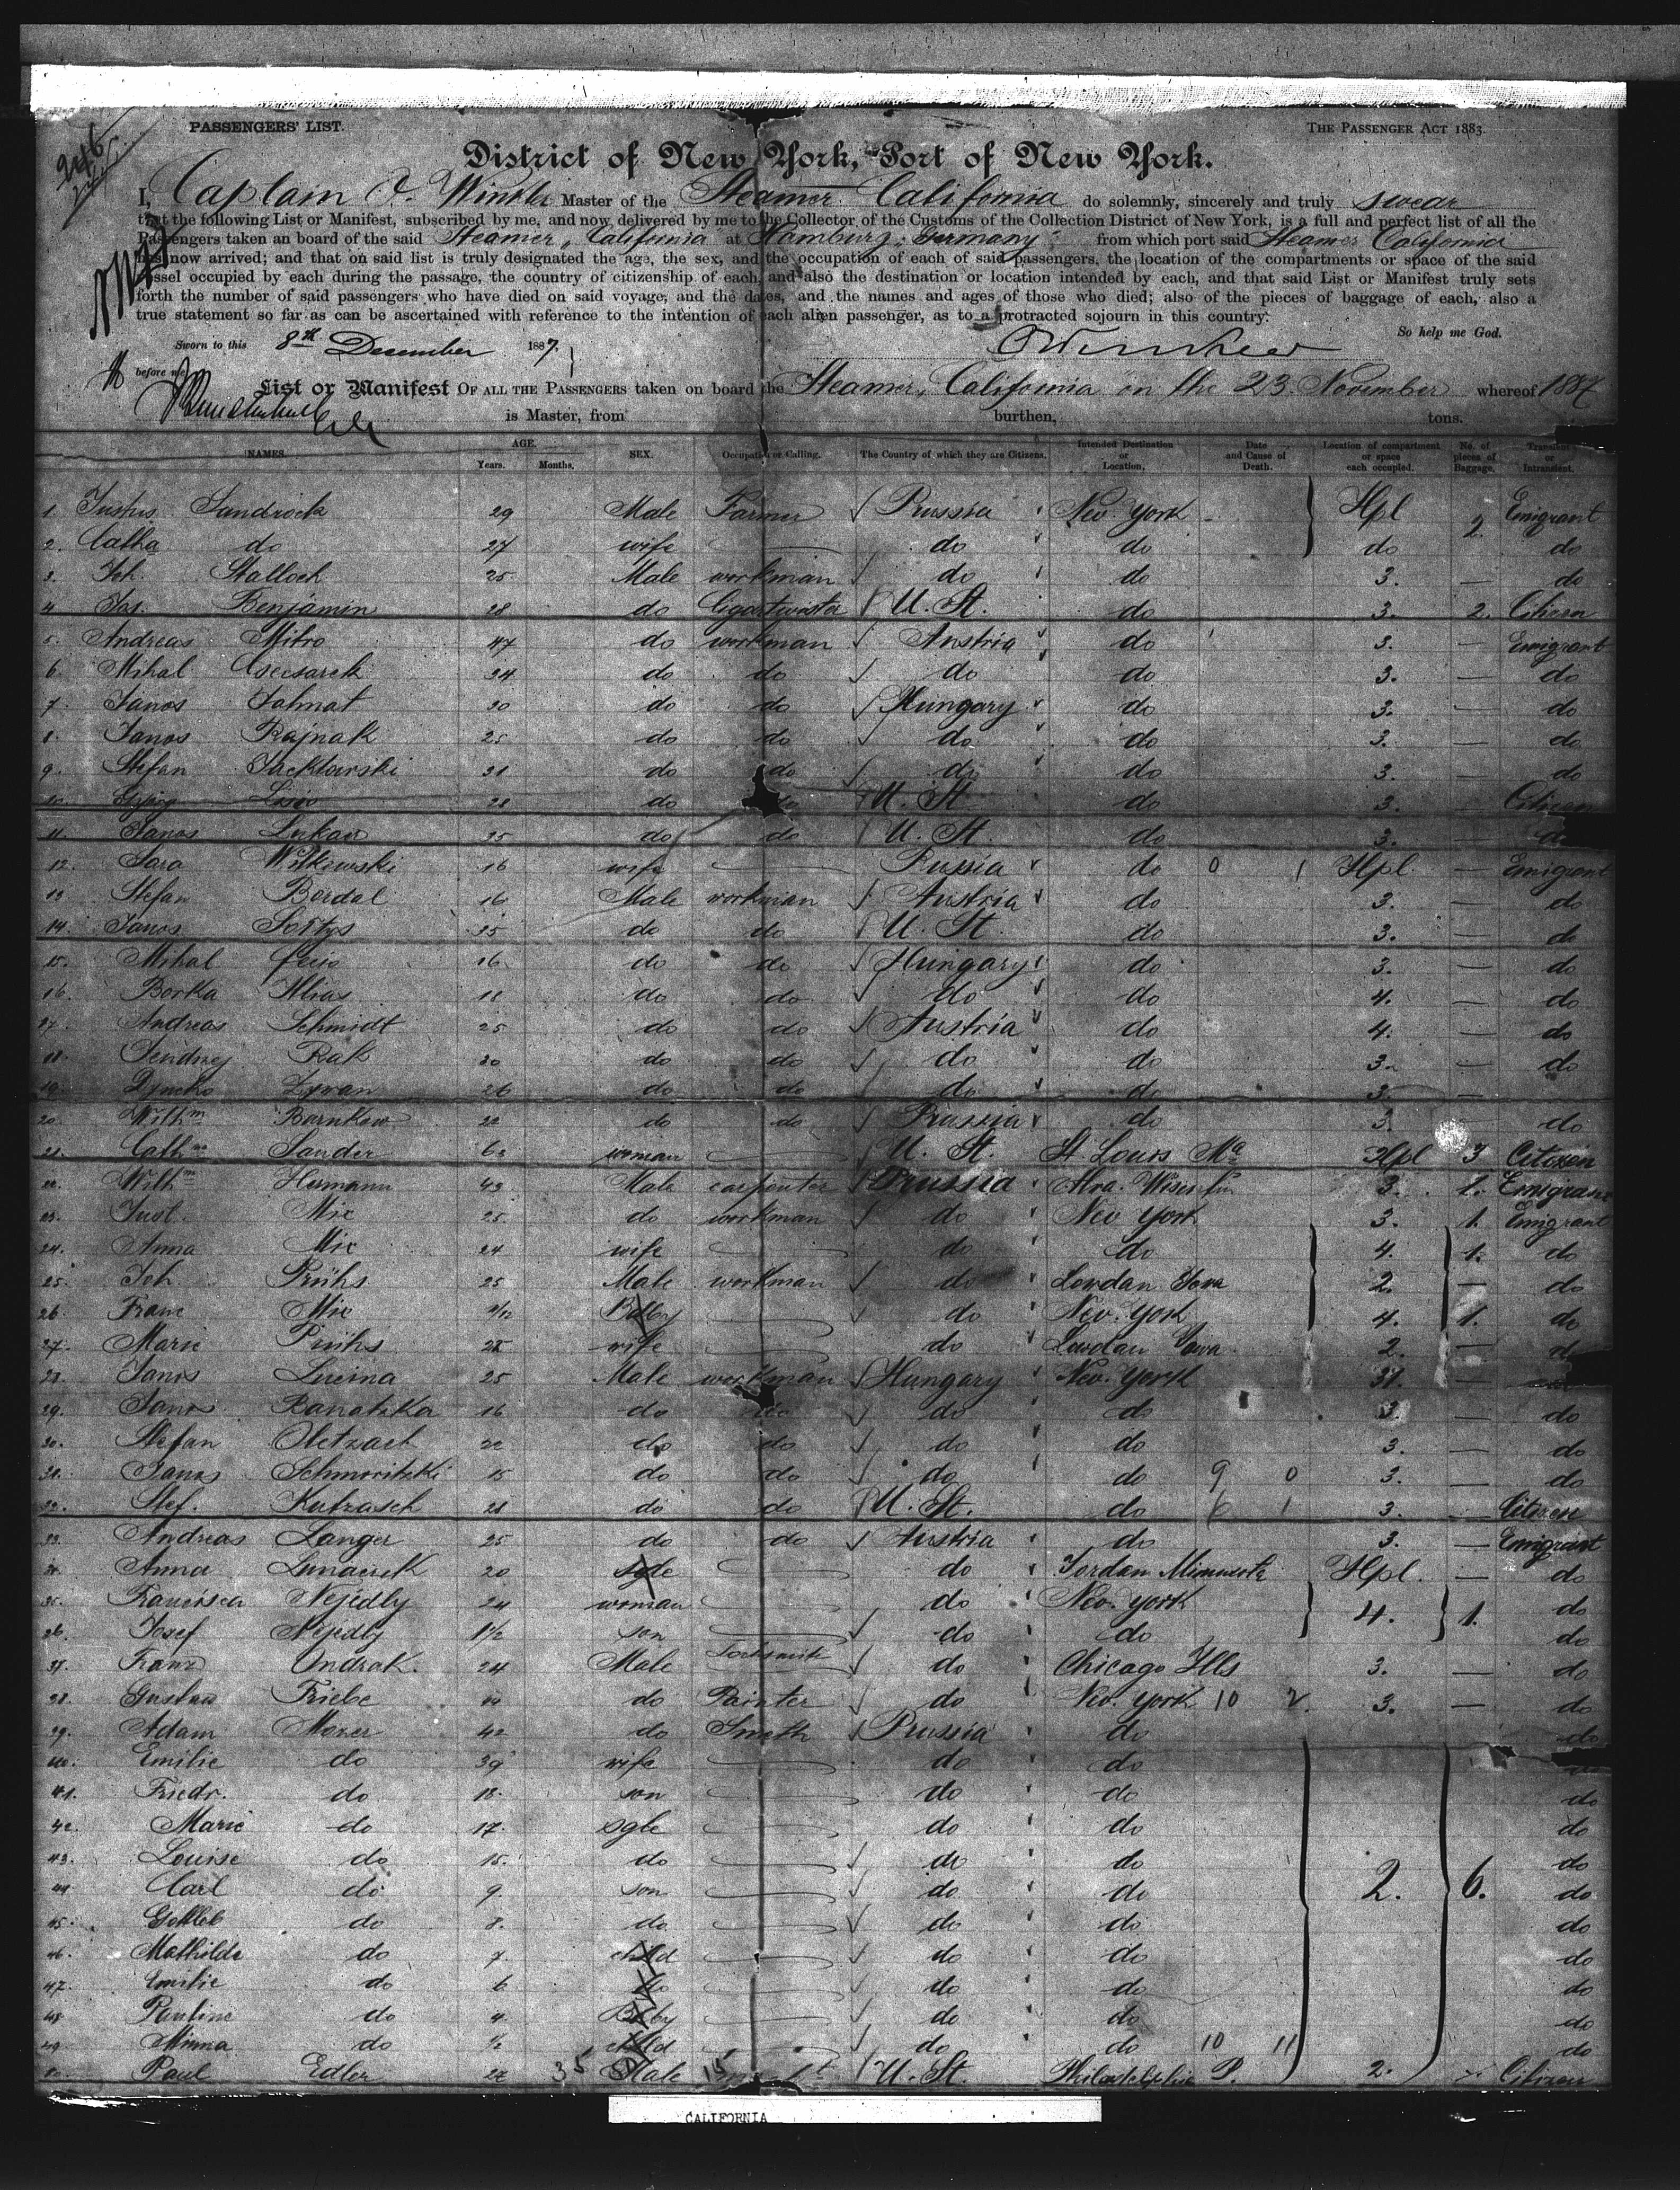 246
PASSENGERS' LIST.
THE PASSENGER ACT 1883.
District of New York, Port of New York.
I, Captain Winkler Master of the Steamer California do solemnly, sincerely and truly swear
that the following List or Manifest, subscribed by me, and now delivered by me to the Collector of the Customs of the Collection District of New York, is a full and perfect list of all the
Passengers taken an board of the said Steamer, California at Hamburg, Germany from which port said Steamer California
has now arrived; and that on said list is truly designated the age, the sex, and the occupation of each of said passengers, the location of the compartments or space of the said
vessel occupied by each during the passage, the country of citizenship of each, and also the destination or location intended by each, and that said List or Manifest truly sets
forth the number of said passengers who have died on said voyage, and the dates, and the names and ages of those who died; also of the pieces of baggage of each, also a
true statement so far as can be ascertained with reference to the intention of each alien passenger, as to a protracted sojourn in this country.
So help me God.
Sworn to this 8th December 1887.
before me
List or Manifest OF ALL THE PASSENGERS taken on board the Steamer, California on the 23. November whereof 1887
is Master, from burthen, tons.
NAMES. AGE. Years. Months. SEX. Occupation or Calling. The Country of which they are Citizens. Intended Destination or Location, Date and Cause of Death. Location of compartment or space each occupied. No. of pieces of Baggage. Transient or Intransient.
1. Justus Sandrock 29 Male Farmer Prussia New York Hpl 2. Emigrant
2. Catha do 27 wife do do do do
3. Joh. Stalloch 25 Male workman do do 3. — do
4. Jos. Benjamin 28 do U. St. do 3. 2. Citizen
5. Andreas Mitro 47 do workman Austria do 3. — Emigrant
6. Mihal 24 do do do do 3. — do
7. Janos 20 do do Hungary do 3. — do
8. Janos Rajnak 25 do do do do 3. — do
9. Stefan 31 do do do do 3. — do
10. 28 do do U. St. do 3. Citizen
11. Janos Lukaw 35 do do U. St. do 3. — do
12. Sara Witkewski 16 wife Russia do 0 Hpl — Emigrant
13 Stefan Bordal 16 Male workman Austria do 3. — do
14. Janos 35 do do U. St. do 3. — do
15. Mihal 16 do do Hungary do 3. — do
16. Borka Ilias do do do do 4. — do
17. Andreas Schmidt 25 do do Austria do 4. — do
18. Rak do do do do 3. — do
19. 26 do do do do 3. —
20. Wilhm Barnkow 22 do do Prussia do 3. do
21. Cathne Sander 63 woman U. St. St Louis Mo Hpl 3 Citizen
22. Wilhm Hermann 43 Male carpenter Prussia 3. 1. Emigrant
23. Just. Mix 25 do workman do New York 3. 1. Emigrant
24. Anna Mix 24 wife do do 4. 1. do
25. Joh Prühs 25 Male workman do Lowdan Iowa 2. — do
26. Franc Mix Baby do New York 4. 1. do
27. Marie Prühs wife do Lowdan Iowa 2. — do
28. Janos Lucina 25 Male workman Hungary New York —
29. Janos 16 do do do do 3. — do
30. Stefan Oletzach 22 do do do do 3. — do
31. Janos Schmoritzki 15 do do do do 9 0 3. — do
32. Stef. Kutzasch do do U. St. do 6 1 3. Citizen
33. Andreas Langer 25 do do Austria do 3. — Emigrant
34. Anna 20 sgle do Jordan Hpl. — do
35. Francisca Nejedly 24 woman do New York 4. 1. do
36. Josef Nejedly 1½ son do do do
37. Franz Ondrak. 24 Male Locksmith do Chicago Ills 3. — do
38. Gustav Friebe do Painter do New York 10 3. — do
39. Adam Mozer 42 do Smith Prussia do do
40. Emilie do 39 wife do do
41. Friedr. do 18. son do do do
42. Marie do 17. sgle do do do
43. Louise do 15. do do do do
44 Carl do 9. son do do 2. 6. do
45. Gottlieb do 8. do do do do
46. Mathilde do 7. child do do do
47. Emilie do 6 do do do do
48. Pauline do 4. Baby do do do
49. Minna do ½ child do do 10 11 do
50. Paul Edler 35 Male 15 U. St. Philadelphia P. 2. Citizen
CALIFORNIA